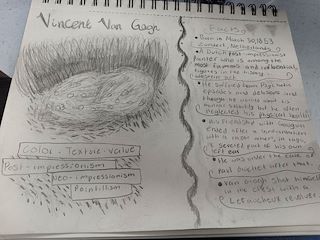 Vincent Van Gogh
Color - Texture - value
Post-impressionism
Neo-impressionism
Pointillism
Facts
• Born in March 30, 1853
Zundert, Netherlands
• A Dutch post-impressionist
Painter who is among the
most famous and influential
figures in the history
western art
• He suffered from Psychotic
episodes and delusions and
though he worried about his
mental stability but he often
neglected his physical health
• His friendship with Gauguin
ended after a confrontation
with a razor when, in rage,
he severed part of his own
left ear
• He was under the care of
Paul Gachet after that
• Van Gogh shot himself
in the chest with a
Lefaucheux revolver